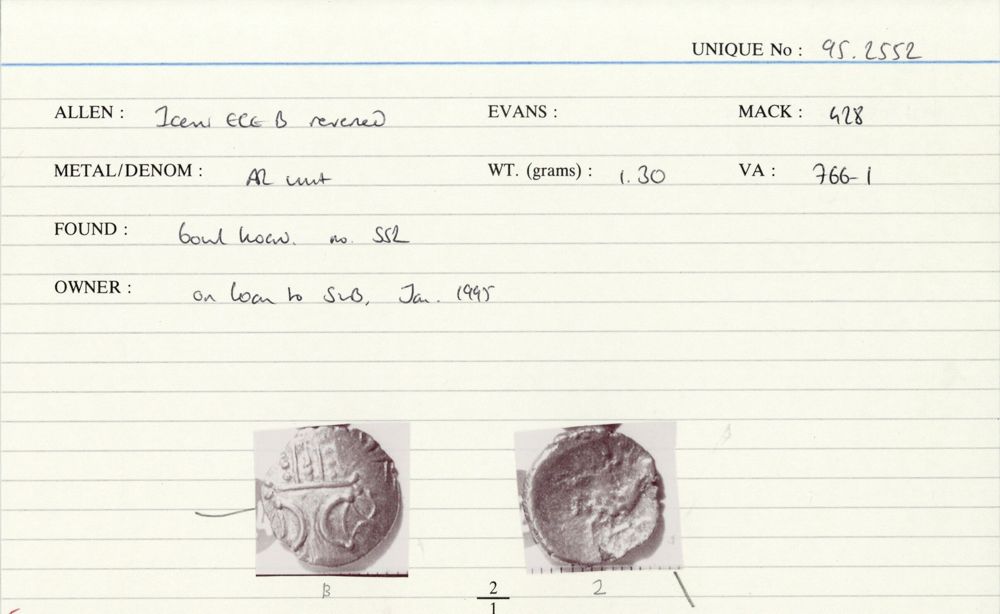 UNIQUE No : 95.2552
ALLEN : Iceni ECE B reversed EVANS : MACK : 428
METAL/DENOM : AR unit WT. (grams) : 1.30 VA : 766-1
FOUND : bowl hoard. no. 552
OWNER : on loan to SLB, Jan. 1995
B 2 2
1